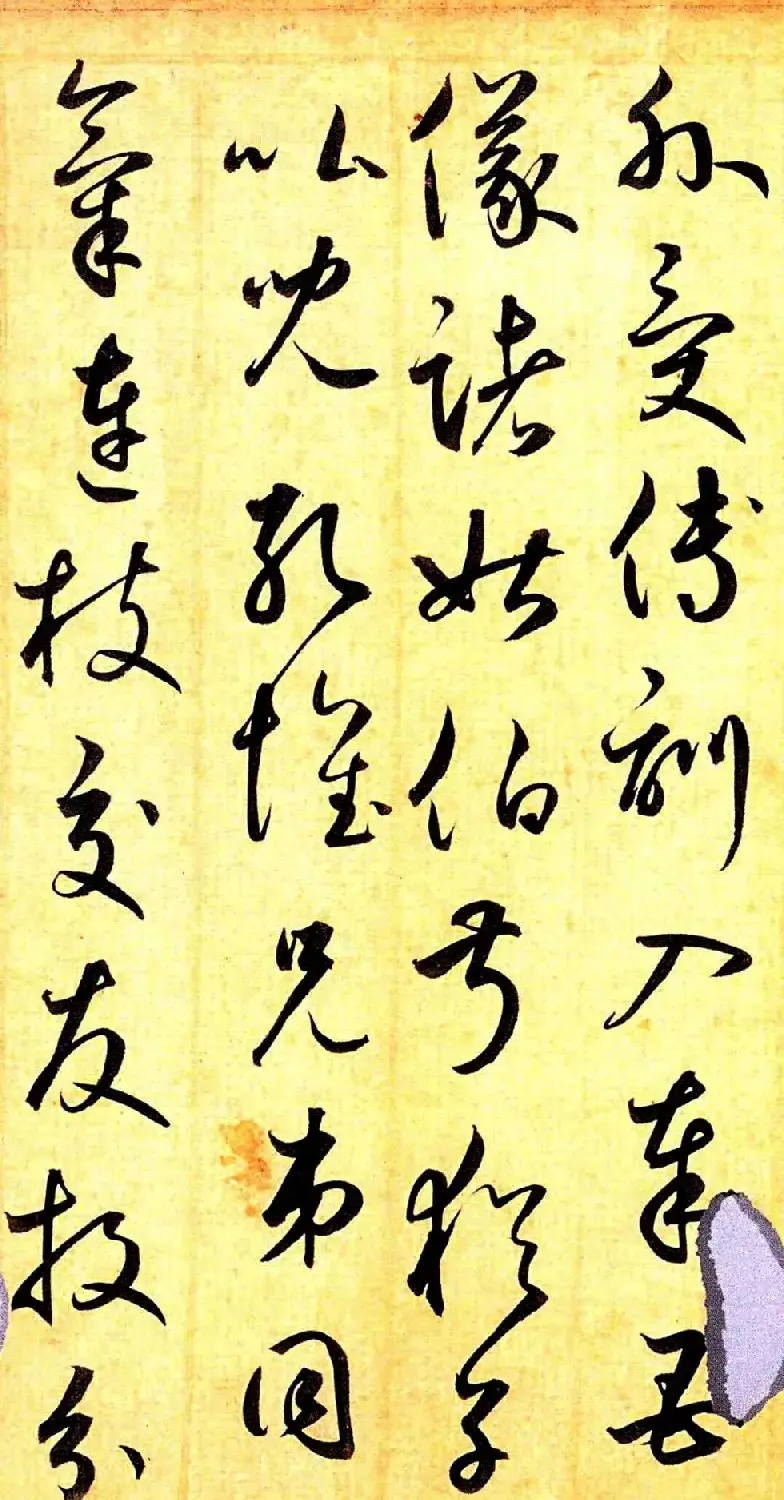 外受傅訓入奉母
儀諸姑伯叔猶子
比兒孔懷兄弟同
氣連枝交友投分